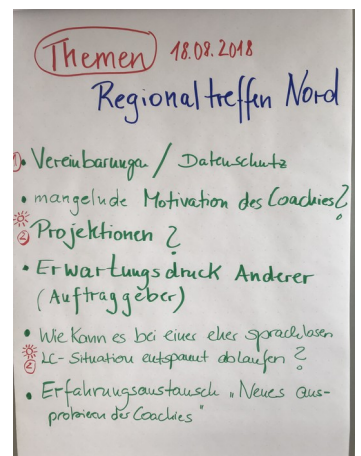 Themen 18.08.2018
Regionaltreffen Nord
1. • Vereinbarungen / Datenschutz
• mangelnde Motivation des Coachies?
② Projektionen?
• Erwartungsdruck Anderer
(Auftraggeber)
• Wie kann es bei einer eher sprachlosen
② LC-Situation entspannt ablaufen?
• Erfahrungsaustausch „Neues aus-
probieren der Coachies"